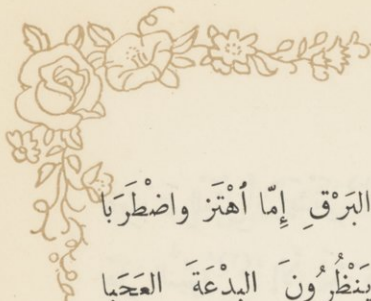 البَرْقِ إِمّا أهْتَز واضْطَرَبا
يَنْظُرُونَ البِدْعَةَ العَجَبا